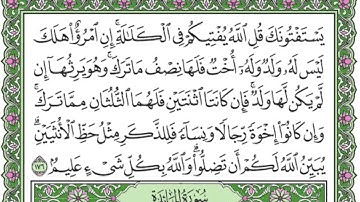 يَسْتَفْتُونَكَ قُلِ ٱللَّهُ يُفْتِيكُمْ فِي ٱلْكَلَٰلَةِۚ إِنِ ٱمْرُؤٌا۟ هَلَكَ
لَيْسَ لَهُۥ وَلَدٌ وَلَهُۥٓ أُخْتٌ فَلَهَا نِصْفُ مَا تَرَكَۚ وَهُوَ يَرِثُهَآ إِن
لَّمْ يَكُن لَّهَا وَلَدٌۚ فَإِن كَانَتَا ٱثْنَتَيْنِ فَلَهُمَا ٱلثُّلُثَانِ مِمَّا تَرَكَۚ
وَإِن كَانُوٓا۟ إِخْوَةً رِّجَالًا وَنِسَآءً فَلِلذَّكَرِ مِثْلُ حَظِّ ٱلْأُنثَيَيْنِۗ
يُبَيِّنُ ٱللَّهُ لَكُمْ أَن تَضِلُّوا۟ۗ وَٱللَّهُ بِكُلِّ شَيْءٍ عَلِيمٌۢ ١٧٦
سُورَةُ المَائِدَةِ